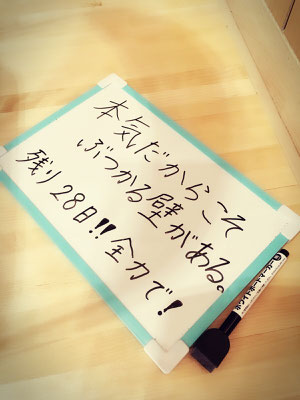 本気だからこそ
ぶつかる壁がある。
残り28日!!全力で!